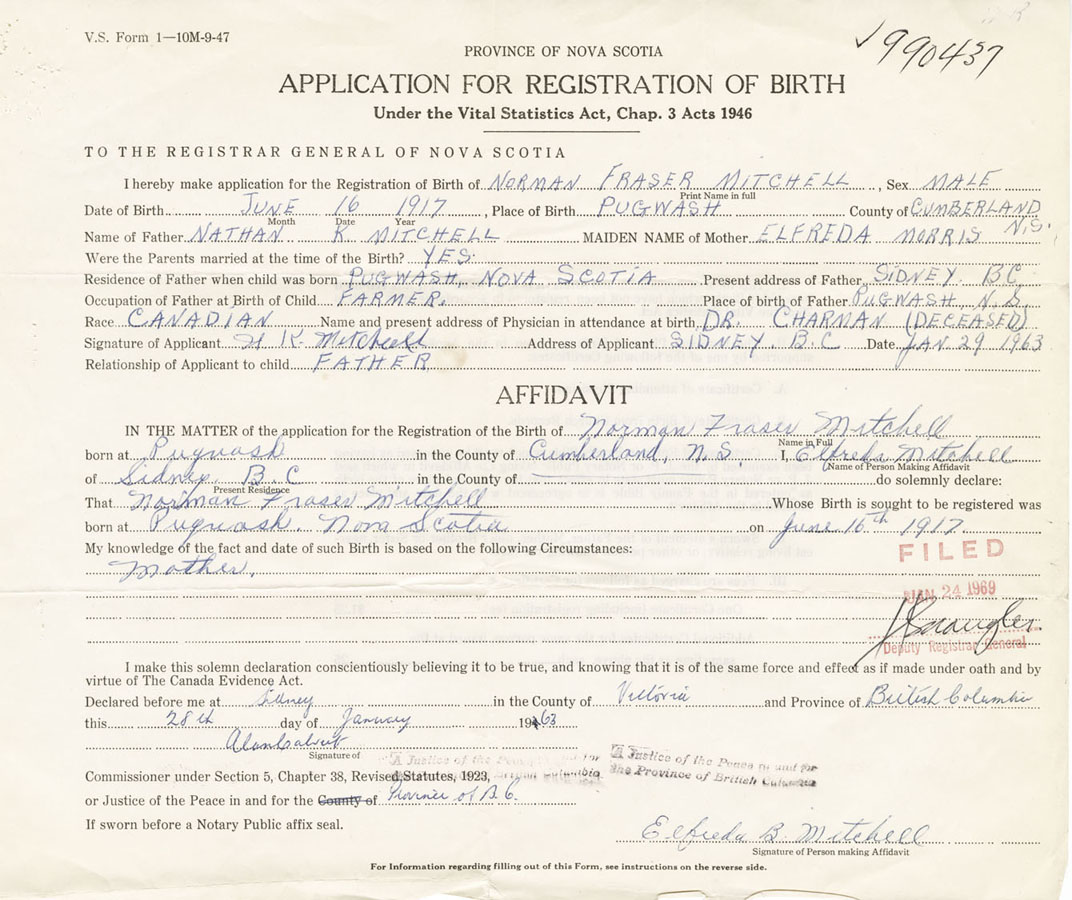 V.S. Form 1—10M-9-47
990437
PROVINCE OF NOVA SCOTIA
APPLICATION FOR REGISTRATION OF BIRTH
Under the Vital Statistics Act, Chap. 3 Acts 1946
TO THE REGISTRAR GENERAL OF NOVA SCOTIA
I hereby make application for the Registration of Birth of NORMAN FRASER MITCHELL, Sex MALE
Print Name in full
Date of Birth JUNE 16 1917, Place of Birth PUGWASH County of CUMBERLAND N.S.
Month Date Year
Name of Father NATHAN K MITCHELL MAIDEN NAME of Mother ELFREDA MORRIS
Were the Parents married at the time of the Birth? YES
Residence of Father when child was born PUGWASH, NOVA SCOTIA Present address of Father SIDNEY. BC
Occupation of Father at Birth of Child FARMER. Place of birth of Father PUGWASH N.S.
Race CANADIAN Name and present address of Physician in attendance at birth DR. CHARMAN (DECEASED)
Signature of Applicant K Mitchell Address of Applicant SIDNEY B.C Date JAN. 29 1963
Relationship of Applicant to child FATHER
AFFIDAVIT
IN THE MATTER of the application for the Registration of the Birth of Norman Fraser Mitchell
Name in Full
born at Pugwash in the County of Cumberland, N.S. I, Elfreda Mitchell
Name of Person Making Affidavit
of Sidney B.C in the County of do solemnly declare:
Present Residence
That Norman Fraser Mitchell Whose Birth is sought to be registered was
born at Pugwash. Nova Scotia on June 16th 1917
My knowledge of the fact and date of such Birth is based on the following Circumstances:
Mother.
FILED
JAN 24 1969
Deputy Registrar General
I make this solemn declaration conscientiously believing it to be true, and knowing that it is of the same force and effect as if made under oath and by
virtue of The Canada Evidence Act.
Declared before me at Sidney in the County of Victoria and Province of British Columbia
this 28th day of January 1963
Alan Calvert
Signature of
A Justice of the Peace in and for
the Province of British Columbia
Commissioner under Section 5, Chapter 38, Revised Statutes, 1923,
or Justice of the Peace in and for the County of Province of B.C.
If sworn before a Notary Public affix seal.
Elfreda B. Mitchell
Signature of Person making Affidavit
For Information regarding filling out of this Form, see instructions on the reverse side.